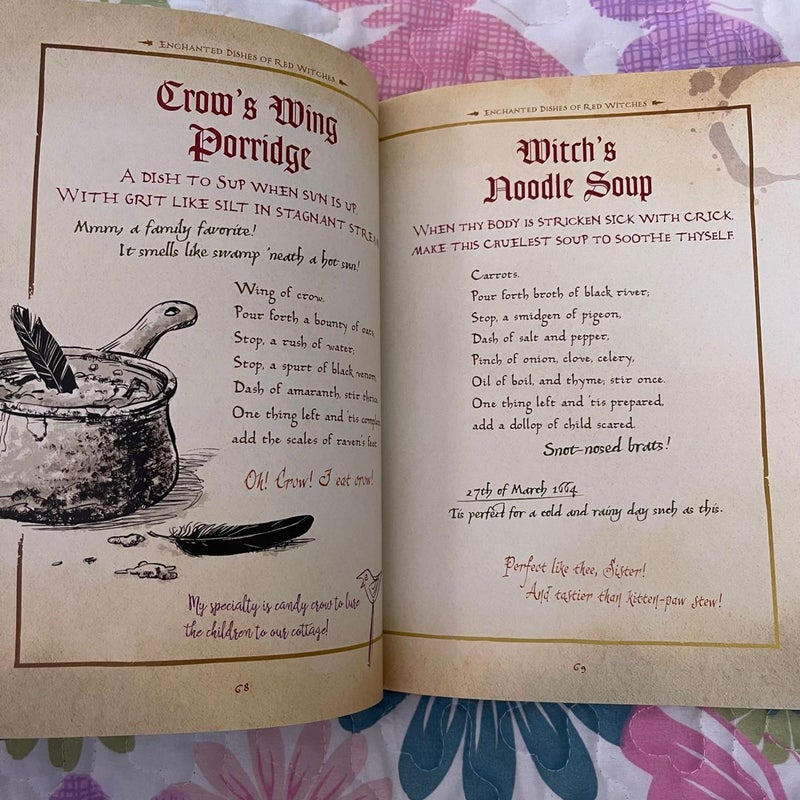 Enchanted Dishes of Red Witches
Crow's Wing
Porridge
A dish to sup when sun is up,
With grit like silt in stagnant
Mmm, a family favorite!
It smells like swamp 'neath a hot sun!
Wing of crow.
Pour forth a bounty of oats,
Stop, a rush of water;
Stop, a spurt of black venom,
Dash of amaranth, stir thrice.
One thing left and 'tis
add the scales of raven's feet.
Oh! Crow! I eat crow!
My specialty is candy crow to lure
the children to our cottage!
68
Enchanted Dishes of Red Witches
Witch's
Noodle Soup
When thy body is stricken sick with crick,
Make this cruelest soup to soothe thyself.
Carrots.
Pour forth broth of black river;
Stop, a smidgen of pigeon,
Dash of salt and pepper,
Pinch of onion, clove, celery,
Oil of boil, and thyme; stir once.
One thing left and 'tis prepared,
add a dollop of child scared.
Snot-nosed brats!
27th of March 1664
'Tis perfect for a cold and rainy day such as this.
Perfect like thee, Sister!
And tastier than kitten-paw stew!
69